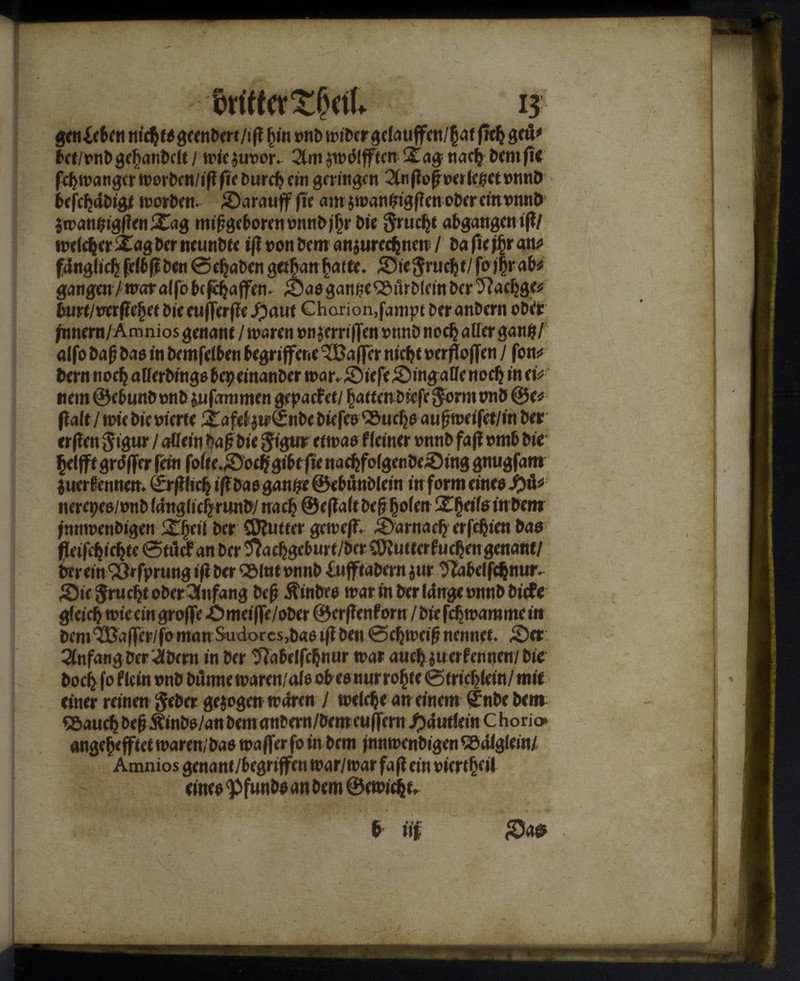 Dritter Theil. 13
gen Leben nichts geendert/ist hin vnd wider gelauffen/hat sich geü-
bet/vnd gehandelt / wie zuvor. Am zwölfften Tag nach dem sie
schwanger worden/ist sie durch ein geringen Anstoß verletzet vnnd
beschädigt worden. Darauff sie am zwantzigsten oder ein vnnd
zwantzigsten Tag mißgeboren vnnd jhr die Frucht abgangen ist/
welcher Tag der neundte ist von dem anzurechnen / da sie jhr an-
fänglich selbst den Schaden gethan hatte. Die Frucht/ so jhr ab-
gangen / war also beschaffen. Das gantze Bürdlein der Nachge-
burt/verstehet die eusserste Haut Chorion,sampt der andern oder
jnnern/Amnios genant / waren vnzerrissen vnnd noch aller gantz/
also daß das in demselben begriffene Wasser nicht verflossen / son-
dern noch allerdings bey einander war. Diese Ding alle noch in ei-
nem Gebund vnd zusammen gepacket/ hatten diese Form vnd Ge-
stalt / wie die vierte Tafel zu Ende dieses Buchs außweiset/in der
ersten Figur / allein daß die Figur etwas kleiner vnnd fast vmb die
helfft grösser sein solte. Doch gibt sie nachfolgende Ding gnugsam
zuerkennen. Erstlich ist das gantze Gebündlein in form eines Hü-
nereyes/vnd länglich rund/ nach Gestalt deß holen Theils in dem
jnnwendigen Theil der Mutter gewest. Darnach erschien das
fleischichte Stück an der Nachgeburt/der Mutterkuchen genant/
der ein Vrsprung ist der Blut vnnd Lufftadern zur Nabelschnur.
Die Frucht oder Anfang deß Kindes war in der länge vnnd dicke
gleich wie ein grosse Omeisse/oder Gerstenkorn / die schwamme in
dem Wasser/so man Sudores,das ist den Schweiß nennet. Der
Anfang der Adern in der Nabelschnur war auch zu erkennen/ die
doch so klein vnd dünne waren/als ob es nur rohte Strichlein/ mit
einer reinen Feder gezogen wären / welche an einem Ende dem
Bauch deß Kinds/an dem andern/dem eussern Häutlein Chorio
angehefftet waren/das wasser so in dem jnnwendigen Bälglein/
Amnios genant/begriffen war/war fast ein viertheil
eines Pfunds an dem Gewicht.
b iij Das